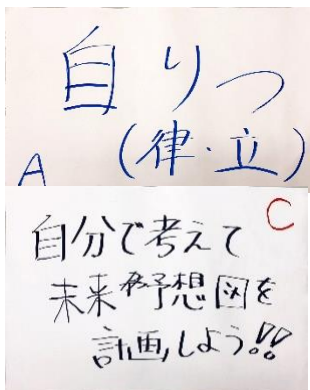 自りつ
(律・立)
A
C
自分で考えて
未来予想図を
計画しよう!!